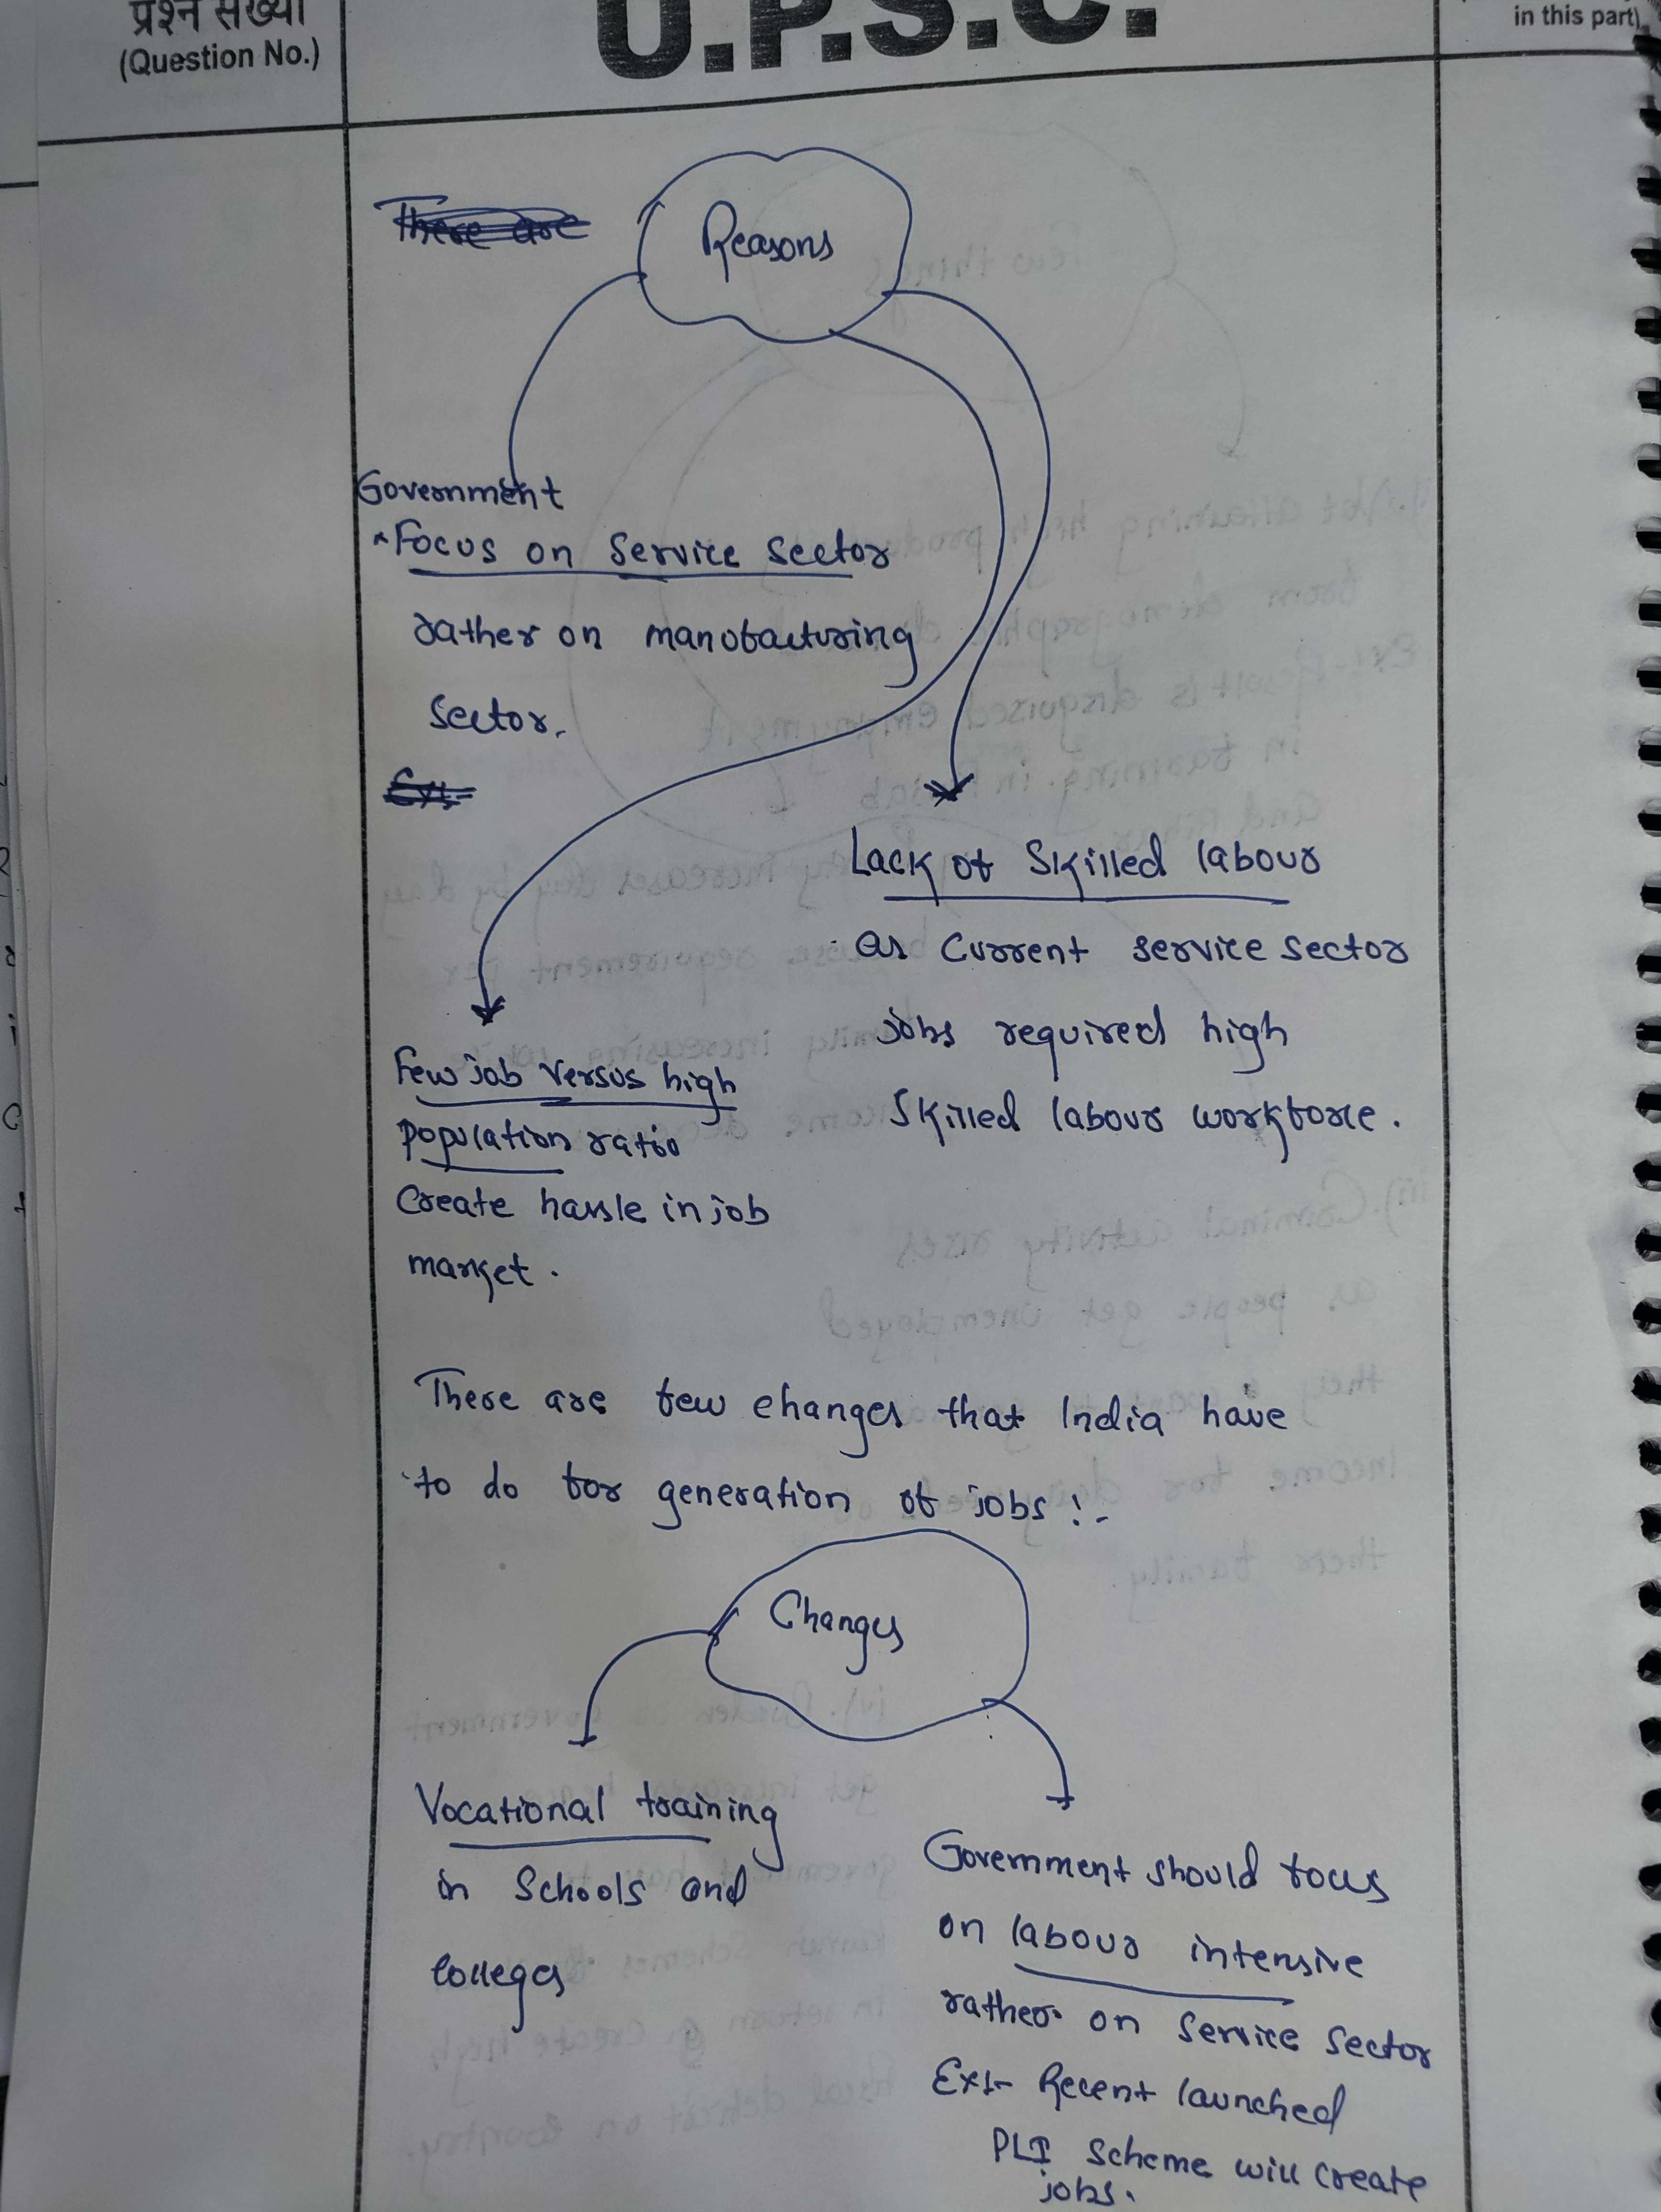 प्रश्न संख्या
(Question No.)
U.P.S.C.
in this part)
There are
Reasons
Government
^Focus on Service Sector
rather on manufacturing
Sector.
Ex:-
Lack of Skilled labour
as Current service sector
jobs required high
Skilled labour workforce.
Few job versus high
population ratio
Create hassle in job
market.
There are few changes that India have
to do for generation of jobs :-
Changes
Vocational training
in Schools and
Colleges
Government should focus
on labour intensive
rather on Service Sector
Ex:- Recent launched
PLI Scheme will create
jobs.